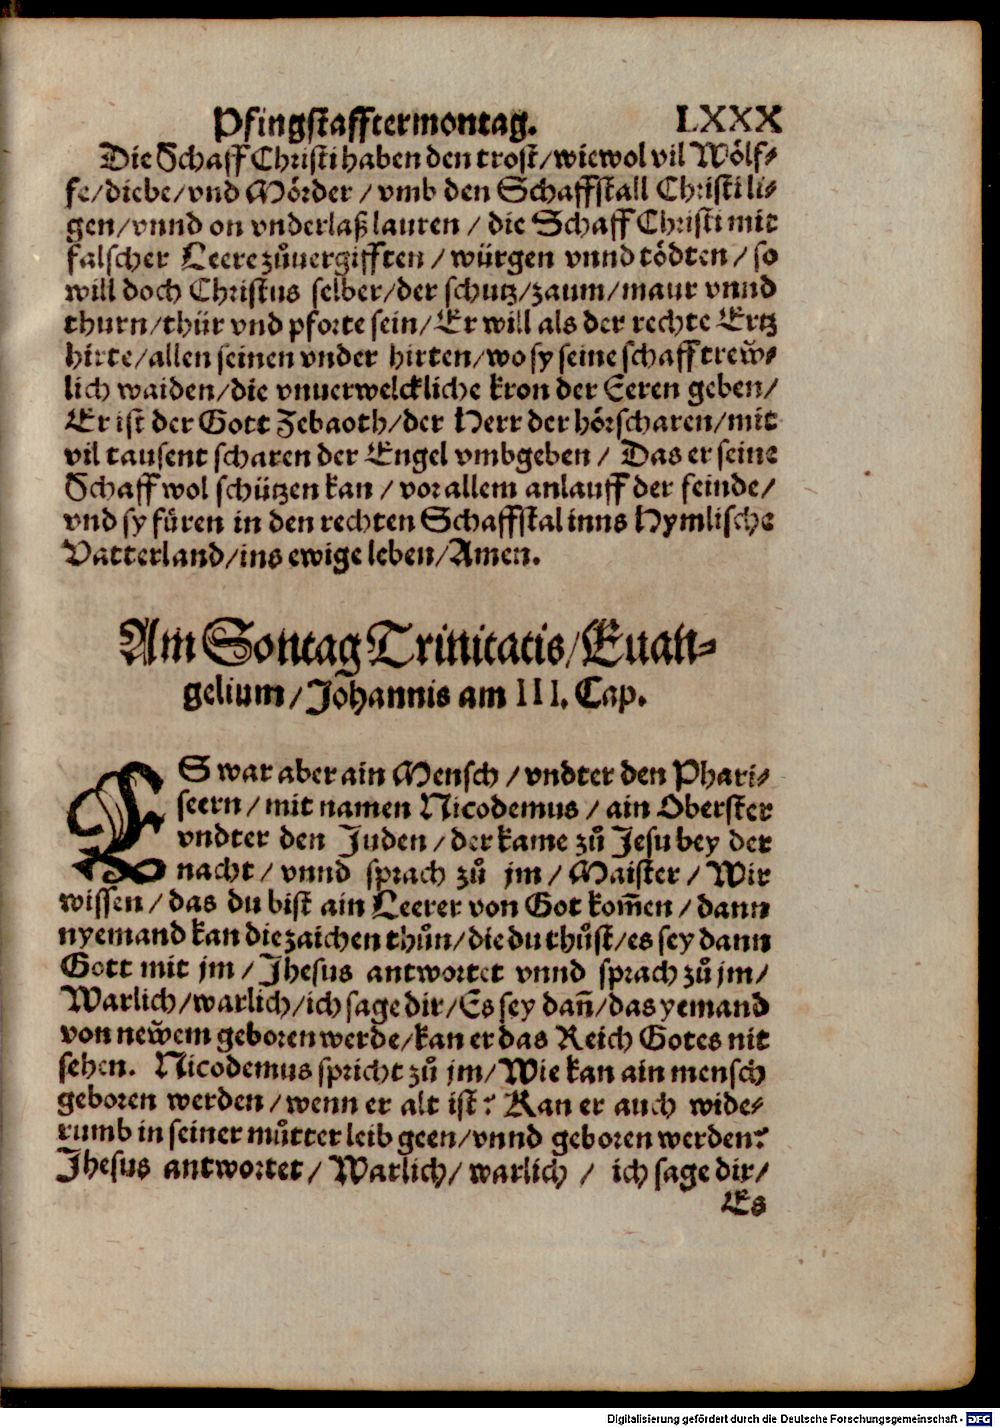 Pfingstafftermontag. LXXX
Die Schaff Christi haben den trost/wiewol vil Wölf-
fe/diebe/vnd Mörder/vmb den Schaffstall Christi li-
gen/vnnd on vnderlaß lauren/die Schaff Christi mit
falscher Leere zůuergifften/würgen vnnd tödten/so
will doch Christus selber/der schutz/zaum/maur vnnd
thurn/thür vnd pforte sein/Er will als der rechte Ertz
hirte/allen seinen vnder hirten/wo sy seine schaff trew̃-
lich waiden/die vnuerwelckliche kron der Eeren geben/
Er ist der Gott Zebaoth/der Herr der hörscharen/mit
vil tausent scharen der Engel vmbgeben/Das er seine
Schaff wol schützen kan/vor allem anlauff der feinde/
vnd sy füren in den rechten Schaffstal inns Hymlische
Vatterland/ins ewige leben/Amen.
Am Sontag Trinitatis/Euan-
gelium/Johannis am III. Cap.
ES war aber ain Mensch/vndter den Phari-
seern/mit namen Nicodemus/ain Oberster
vndter den Juden/der kame zů Jesu bey der
nacht/vnnd sprach zů jm/Maister/Wir
wissen/das du bist ain Leerer von Got kom̃en/dann
nyemand kan die zaichen thůn/die du thůst/es sey dann
Gott mit jm/Jhesus antwortet vnnd sprach zů jm/
Warlich/warlich/ich sage dir/Es sey dañ/das yemand
von new̃em geboren werde/kan er das Reich Gotes nit
sehen. Nicodemus spricht zů jm/Wie kan ain mensch
geboren werden/wenn er alt ist? Kan er auch wide-
rumb in seiner můtter leib geen/vnnd geboren werden?
Jhesus antwortet/Warlich/warlich/ich sage dir/
Es
Digitalisierung gefördert durch die Deutsche Forschungsgemeinschaft - DFG